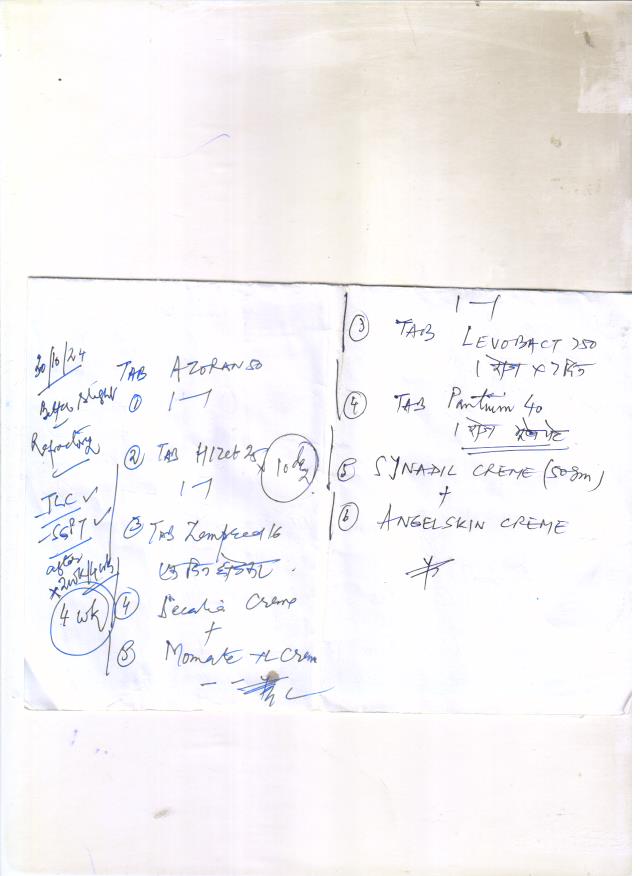 30/10/24
Better slight
Refracting
TLC ✓
SGPT ✓
after
x 2wk/4wk
4 wk
TAB AZORAN 50
① 1—1
② TAB HIZET 25
1—1
10 days
③ TAB Zempred 16
④ Creme
+
⑤ Momate XL Crem
1—1
③ TAB LEVOBACT 750
1 रोज x 7 दिन
④ TAB Pantium 40
1 रोज
⑤ SYNADIL CREME (50gm)
+
⑥ ANGELSKIN CREME